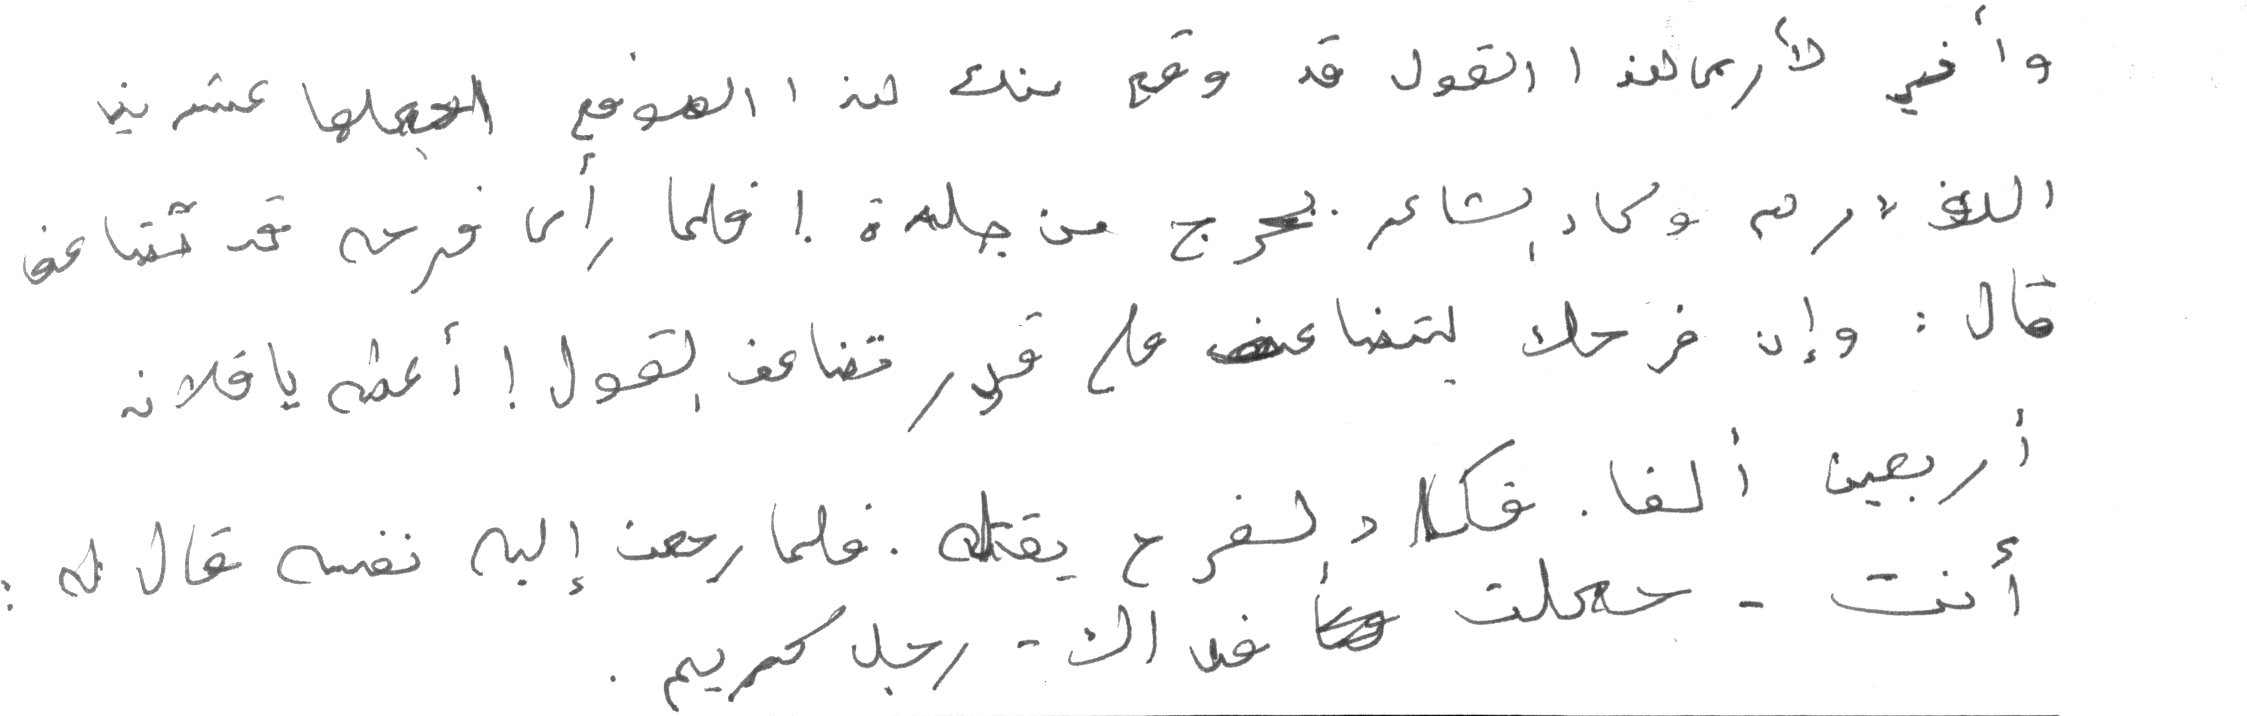 وأني لأرى هذا القول قد وقع منك هذا الموقع اجعلها عشرين
ألف درهم وكاد الشاعر يخرج من جلده ! فلما رأى فرحه قد تضاعف
قال : وإن فرحك ليتضاعف على قدر تضاعف القول ! أعطه يا فلان
أربعين ألفا . فكاد الفرح يقتله . فلما رجعت إليه نفسه قال له :
أنت - جعلت فداك - رجل كريم .